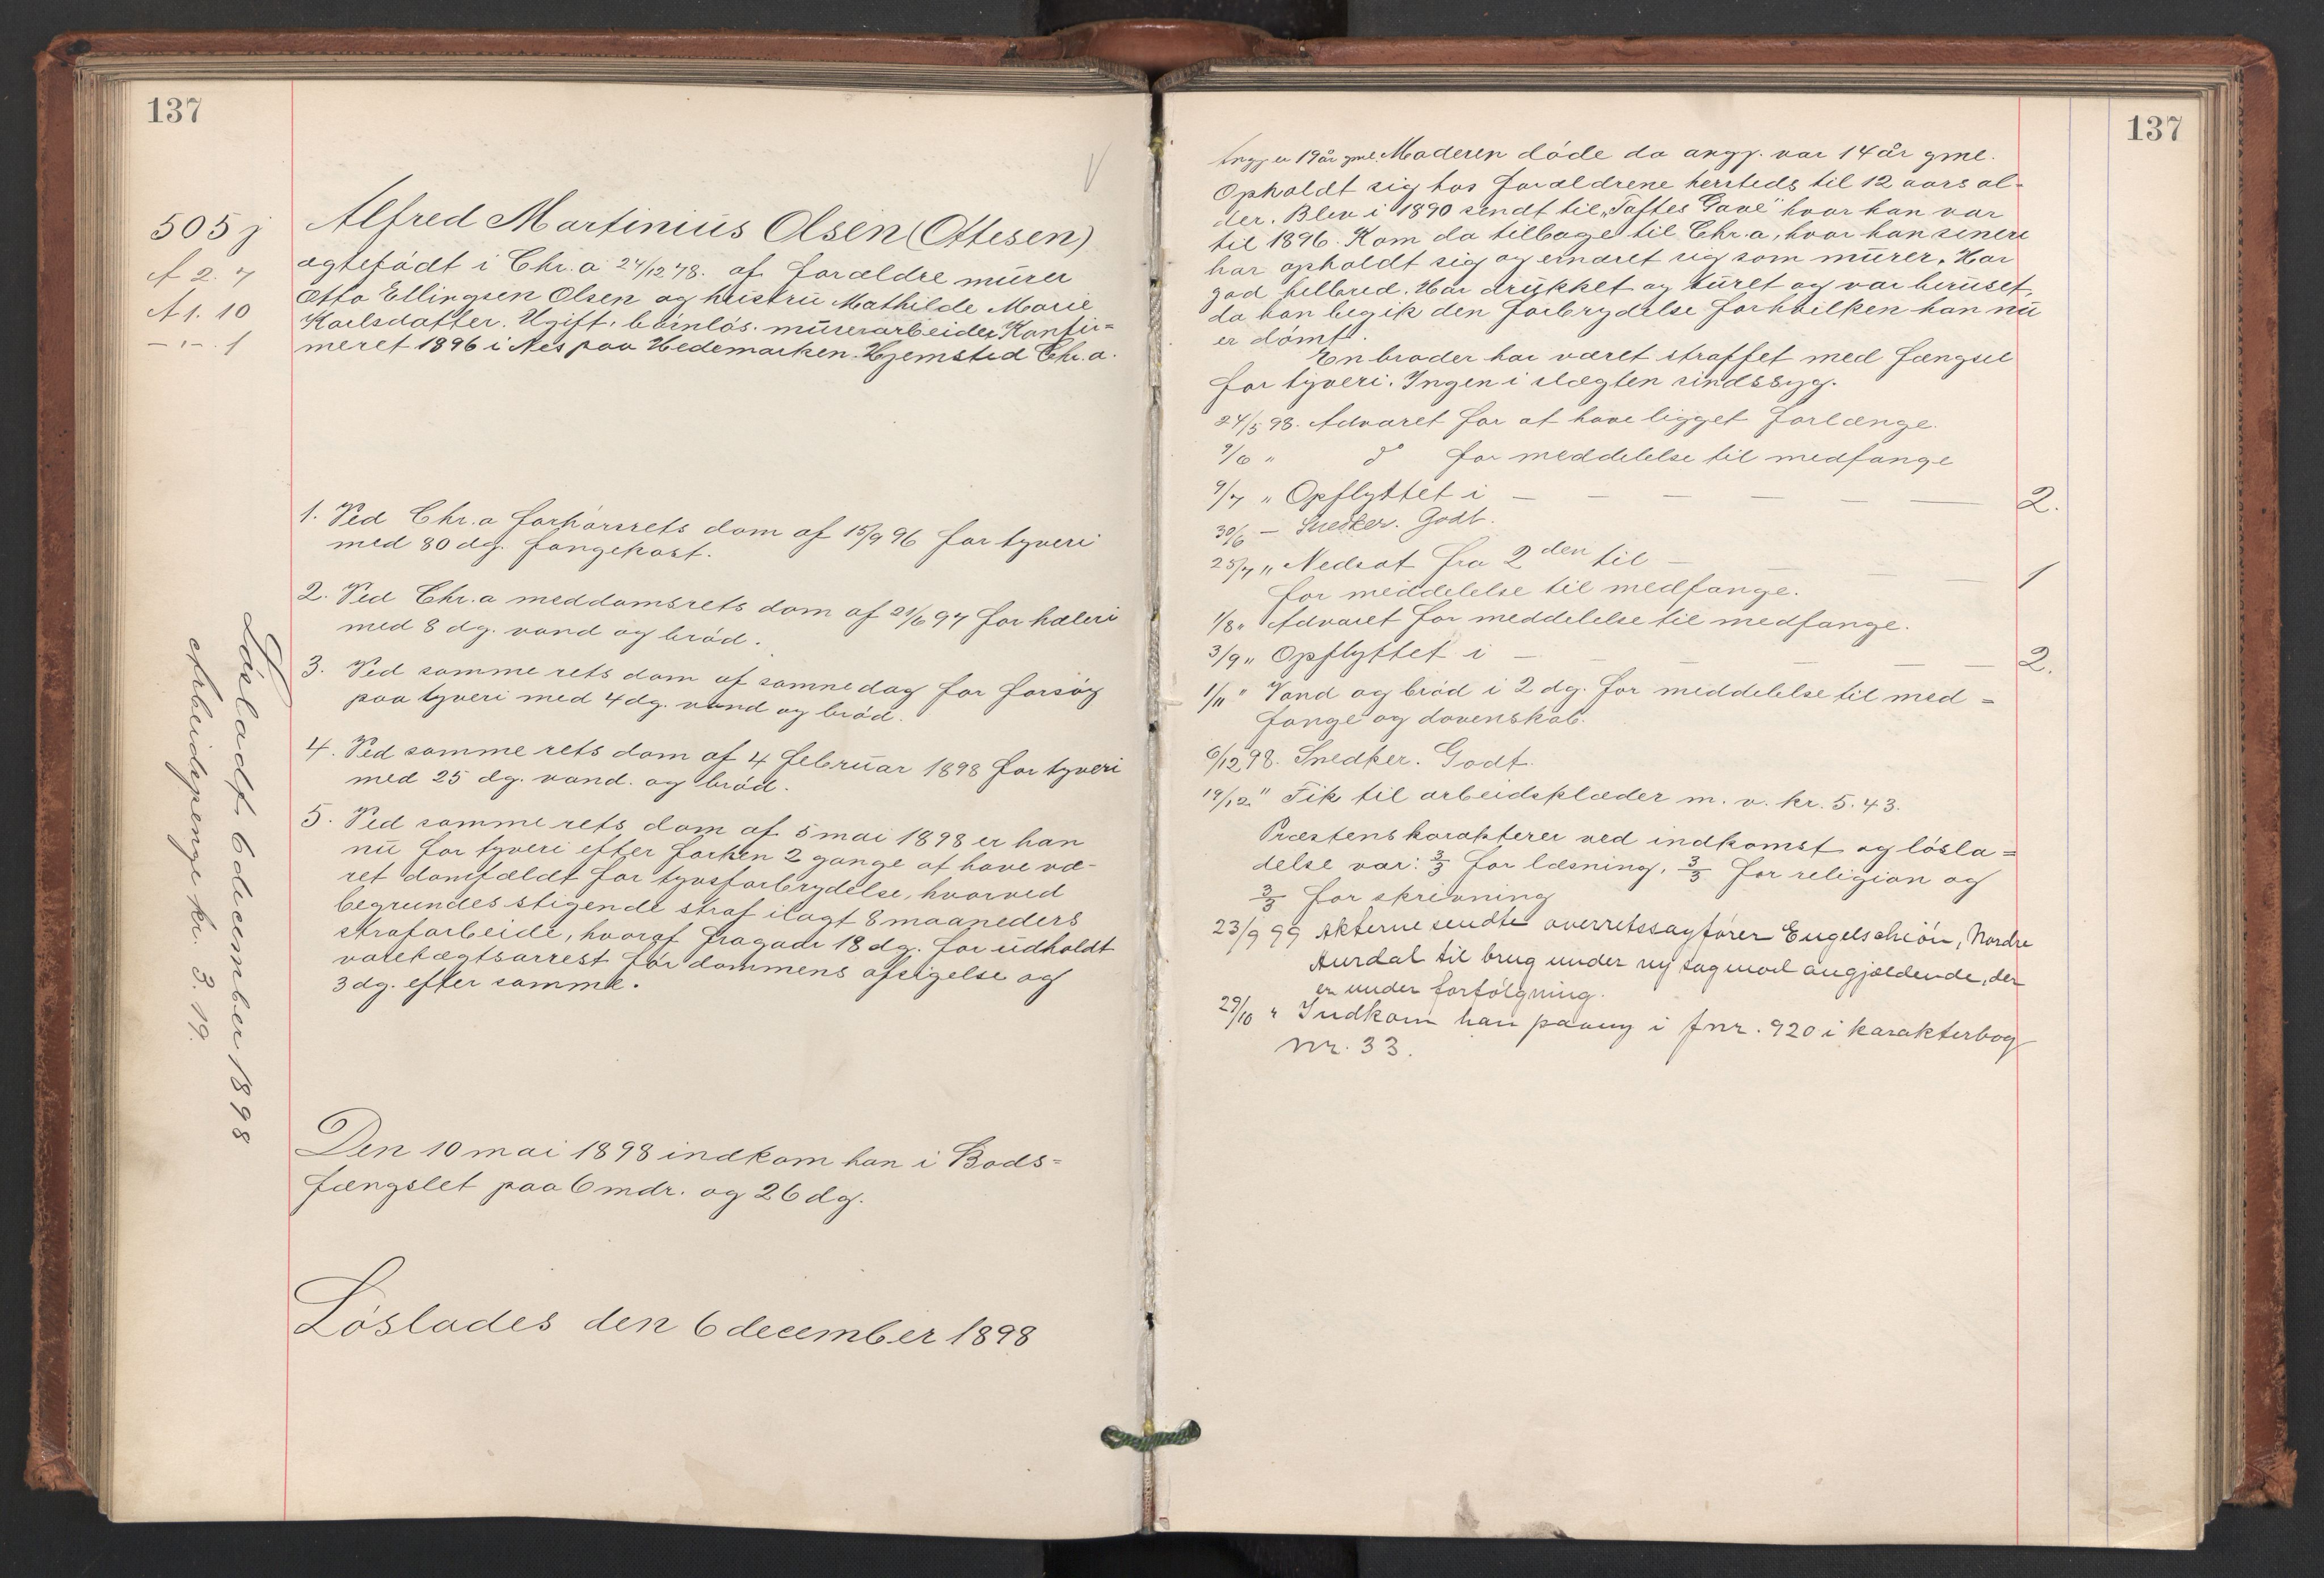 137
505 j
A 2. 7
A 1. 10
— " — . 1
Alfred Martinius Olsen (Ottesen)
ægtefødt i Chr.a 24/12 78. af forældre murer
Otto Ellingsen Olsen og hustru Mathilde Marie
Karlsdatter. Ugift, børnløs. murerarbeider Konfir=
meret 1896 i Nes paa Hedemarken. Hjemsted Chr.a.
1. Ved Chr.a forhørsrets dom af 15/9 96 for tyveri
med 80 dg. fangekost.
2. Ved Chr.a meddomsrets dom af 21/6 97 for hæleri
med 8 dg. vand og brød.
3. Ved samme rets dom af samme dag for forsøg
paa tyveri med 4 dg. vand og brød.
4. Ved samme rets dom af 4 februar 1898 for tyveri
med 25 dg. vand. og brød.
5. Ved samme rets dom af 5 mai 1898 er han
nu for tyveri efter forhen 2 gange at have væ-
ret domfældt for tyvsforbrydelse, hvorved
begrundes stigende straf ilagt 8 maaneders
strafarbeide, hvoraf fragaar 18 dg. for udholdt
varetægtsarrest før dommens afsigelse og
3 dg. efter samme.
Den 10 mai 1898 indkom han i Bods=
fængslet paa 6 mdr. og 26 dg.
Løslades den 6 december 1898
Løsladt 6 december 1898
Arbeidspenge kr. 3.19.
137
Angj. er 19 år gml. Moderen døde da angj. var 14 år gml.
Opholdt sig hos forældrene hersteds til 12 aars al-
der. Blev i 1890 sendt til "Toftes Gave" hvor han var
til 1896. Kom da tilbage til Chr.a, hvor han senere
har opholdt sig og ernæret sig som murer. Har
god helbred. Har drukket og turet og var beruset,
da han begik den forbrydelse forhvilken han nu
er dømt.
En broder har været straffet med fængsel
for tyveri. Ingen i slægten sindssyg.
24/5 98. Advaret for at have ligget forlænge.
9/6 " do for meddelelse til medfange
9/7 " Opflyttet i — — — — — — 2.
30/6 — Snedker. Godt.
25/7 " Nedsat fra 2den til — — — 1
for meddelelse til medfange.
1/8 " Advaret for meddelelse til medfange.
3/9 " Opflyttet i — — — — — — 2.
1/11 " Vand og brød i 2 dg. for meddelelse til med =
fange og dovenskab.
6/12 98. Snedker. Godt.
19/12 " Fik til arbeidsklæder m. v. kr. 5.43.
Præstens karakterer ved indkomst og løsla =
delse var: 3/3 for læsning, 3/3 for religion og
3/3 for skrivning
23/9 99 Akterne sendte overretssagfører Engelschiön, Nordre
Aurdal til brug under ny sag mod angjældende, der
er under forfølgning.
29/10 " Indkom han paany i fnr. 920 i karakterbog
Nr. 33.